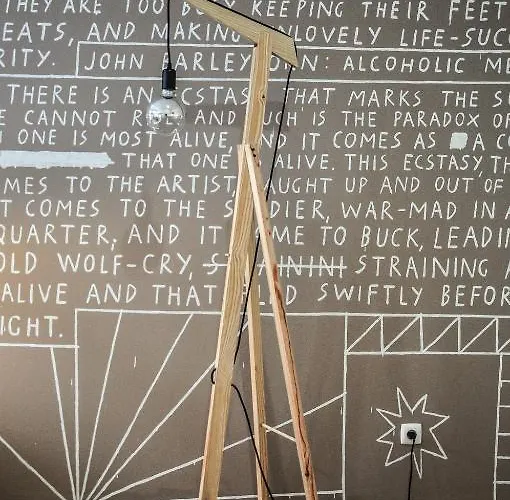 THEY ARE TOO BUSY KEEPING THEIR FEET
EATS, AND MAKING LOVELY LIFE-SUC
RITY. JOHN BARLEYCORN: ALCOHOLIC ME
THERE IS AN ECSTASY THAT MARKS THE SU
E CANNOT RISE AND SUCH IS THE PARADOX OF
ONE IS MOST ALIVE, AND IT COMES AS A CO
THAT ONE ALIVE. THIS ECSTASY, TH
MES TO THE ARTIST, CAUGHT UP AND OUT OF
T COMES TO THE SOLDIER, WAR-MAD IN A
QUARTER, AND IT CAME TO BUCK, LEADIN
OLD WOLF-CRY, STRAINING A
ALIVE AND THAT FLED SWIFTLY BEFOR
IGHT.